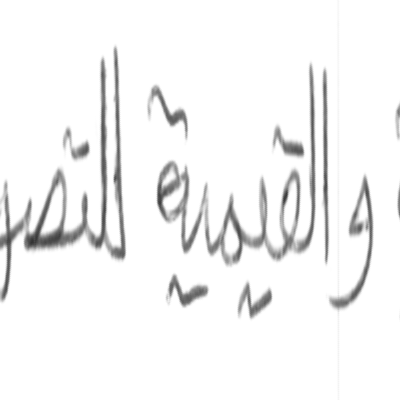 والقيمية للتصو